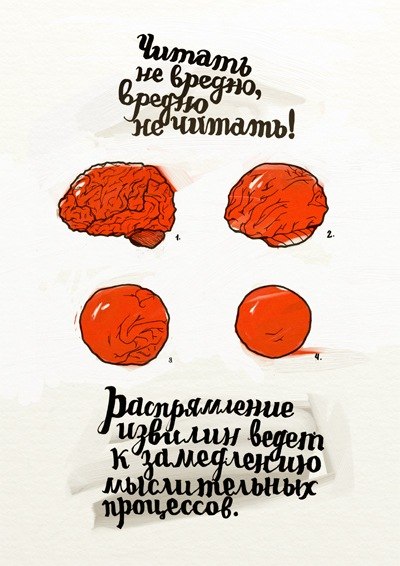 Читать
не вредно,
вредно
не читать!
1.
2.
3
4.
Распрямление
извилин ведет
к замедлению
мыслительных
процессов.